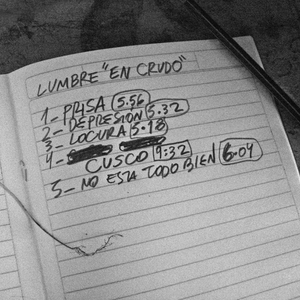 LUMBRE "EN CRUDO"
1- PRISA 5.56
2- DEPRESIÓN 5.32
3- LOCURA 5.18
4-
CUSCO 9:32
5- NO ESTA TODO BIEN 6.04